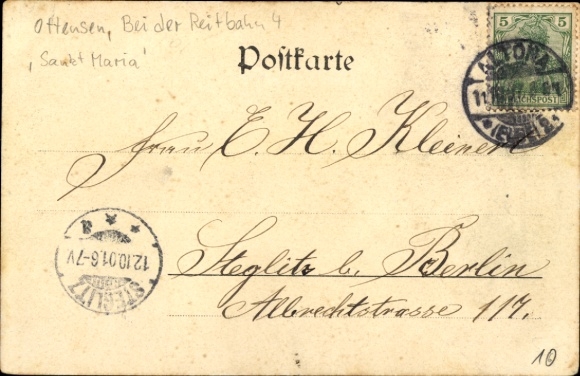 Ottensen, Bei der Reitbahn 4
'Sankt Maria'
Postkarte
5 5
ALTONA
REICHSPOST
Frau E. H. Kleinert
12.10.01.6-7V
STEGLITZ
Steglitz b. Berlin
Albrechtstrasse 117.
10